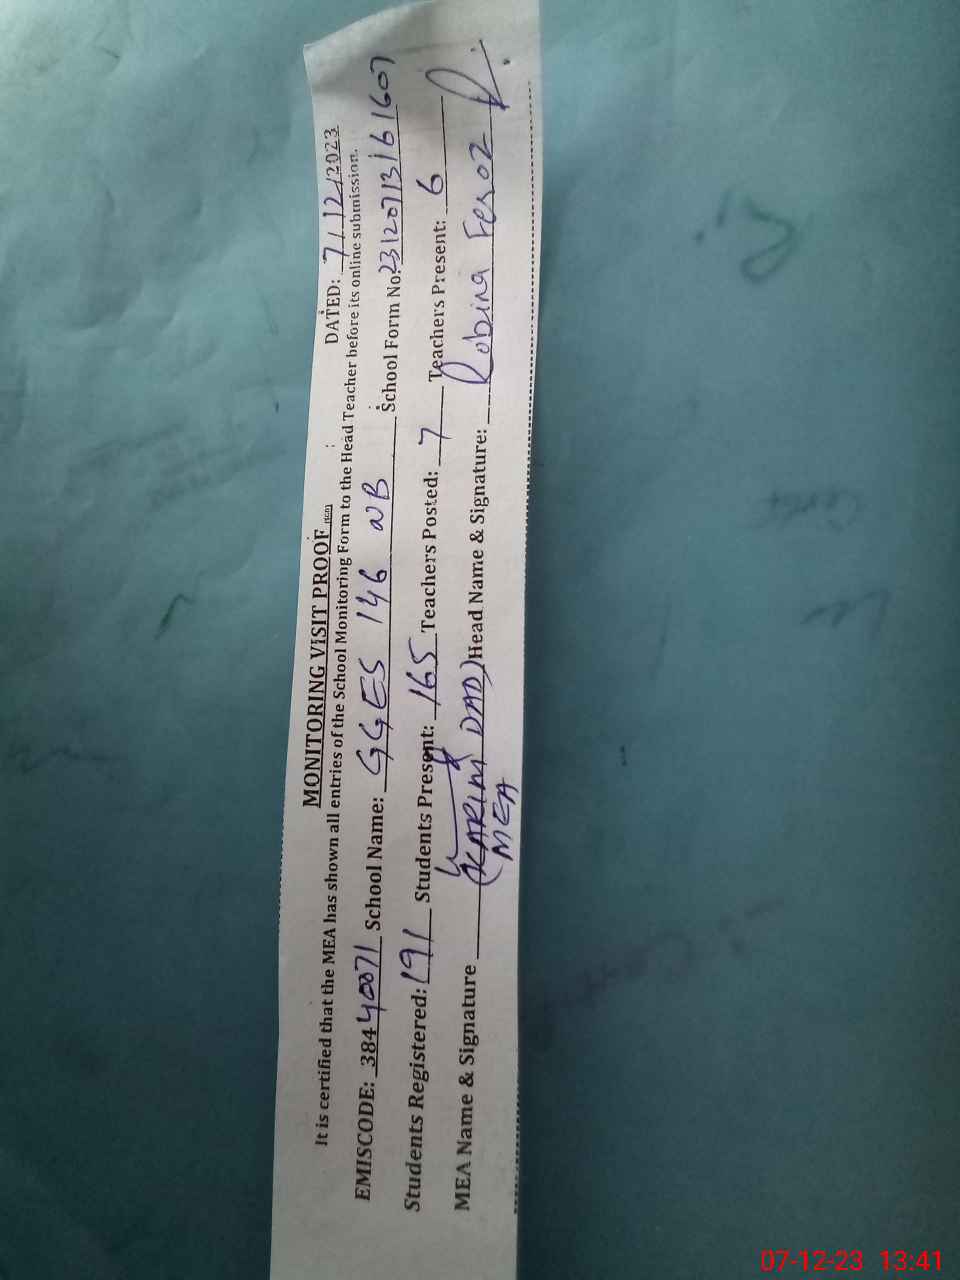 MONITORING VISIT PROOF
DATED: 7/12/2023
It is certified that the MEA has shown all entries of the School Monitoring Form to the Head Teacher before its online submission.
EMISCODE: 38440071 School Name: GGES 146 NB School Form No: 23120713161607
Students Registered: 191 Students Present: 165 Teachers Posted: 7 Teachers Present: 6
MEA Name & Signature (KARIM DAD) Head Name & Signature: Robina Feroz
MEA
07-12-23 13:41